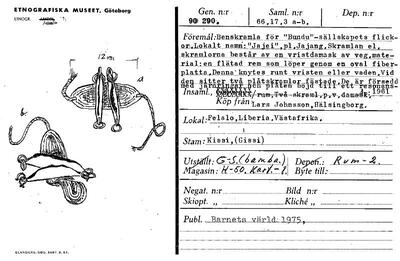 ETNOGRAFISKA MUSEET, Göteborg
ETNOGR.
12 cm
a.
b.
Gen. n:r
Saml. n:r
Dep. n:r
90 290.
66.17.3 a-b.
Föremål: Benskramla för "Bundu"-sällskapets flick-
or. Lokalt namn: "Jajei", pl. Jajang. Skramlan el.
skramlorna består av en vristdamask av veg. mate-
rial: en flätad rem som löper genom en oval fiber-
platta. Denna knytes runt vristen eller vaden. Vid
den sitter två plåtskramlor fästade. De är försedd
Insaml.
1961
rum. Två skraml. p. damask.
Köp från
Lars Johnsson, Hälsingborg.
Lokal:
Felslo, Liberia, Västafrika.
Stam:
Kissi, (Gissi)
Utställt: G-S. (bamba.)
Depon.: Rum-2.
Magasin: H-60. Kart.-1.
Byte till:
Negat. n:r
Bild n:r
Skiopt. „
Kliché „
Publ. Barnets värld 1975,